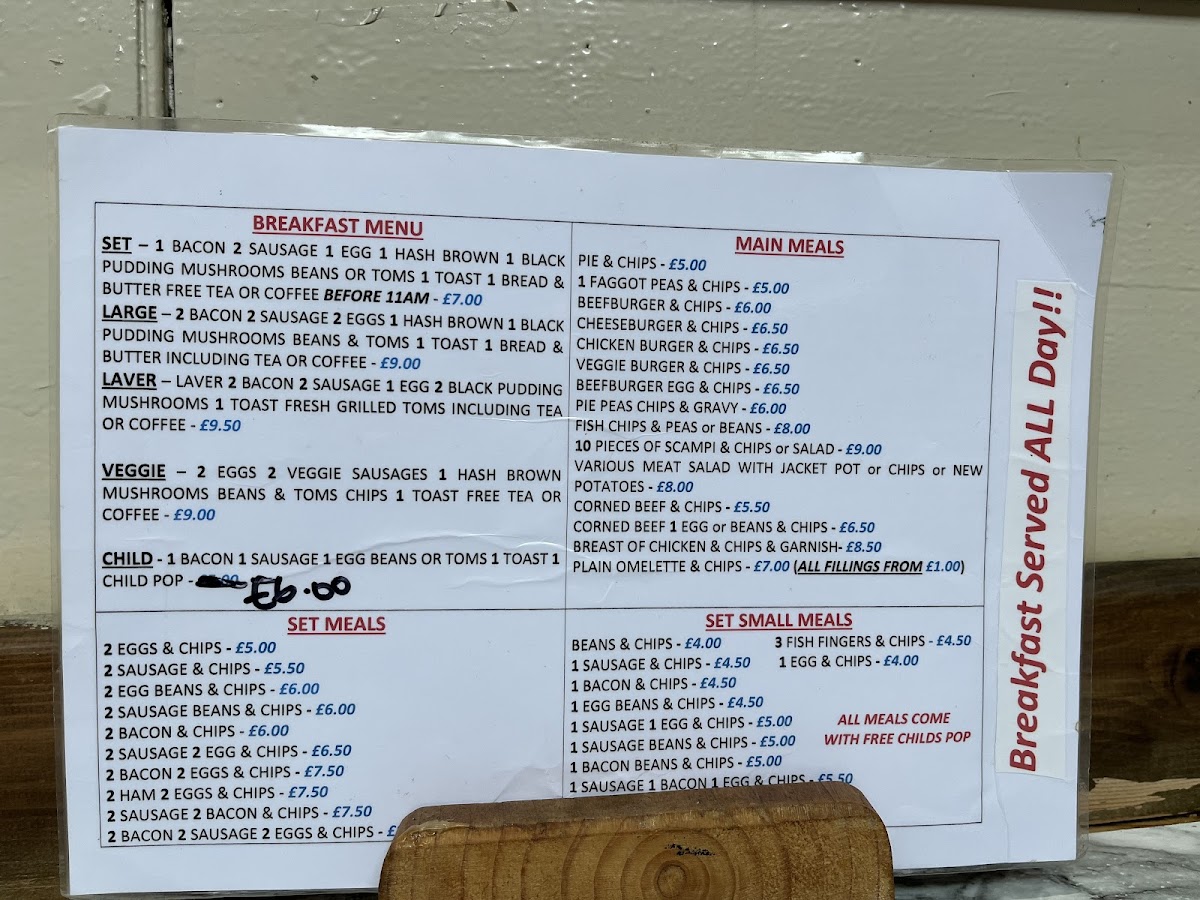 BREAKFAST MENU
SET – 1 BACON 2 SAUSAGE 1 EGG 1 HASH BROWN 1 BLACK
PUDDING MUSHROOMS BEANS OR TOMS 1 TOAST 1 BREAD &
BUTTER FREE TEA OR COFFEE BEFORE 11AM - £7.00
LARGE – 2 BACON 2 SAUSAGE 2 EGGS 1 HASH BROWN 1 BLACK
PUDDING MUSHROOMS BEANS & TOMS 1 TOAST 1 BREAD &
BUTTER INCLUDING TEA OR COFFEE - £9.00
LAVER – LAVER 2 BACON 2 SAUSAGE 1 EGG 2 BLACK PUDDING
MUSHROOMS 1 TOAST FRESH GRILLED TOMS INCLUDING TEA
OR COFFEE - £9.50
VEGGIE – 2 EGGS 2 VEGGIE SAUSAGES 1 HASH BROWN
MUSHROOMS BEANS & TOMS CHIPS 1 TOAST FREE TEA OR
COFFEE - £9.00
CHILD - 1 BACON 1 SAUSAGE 1 EGG BEANS OR TOMS 1 TOAST 1
CHILD POP - £6.00
MAIN MEALS
PIE & CHIPS - £5.00
1 FAGGOT PEAS & CHIPS - £5.00
BEEFBURGER & CHIPS - £6.00
CHEESEBURGER & CHIPS - £6.50
CHICKEN BURGER & CHIPS - £6.50
VEGGIE BURGER & CHIPS - £6.50
BEEFBURGER EGG & CHIPS - £6.50
PIE PEAS CHIPS & GRAVY - £6.00
FISH CHIPS & PEAS or BEANS - £8.00
10 PIECES OF SCAMPI & CHIPS or SALAD - £9.00
VARIOUS MEAT SALAD WITH JACKET POT or CHIPS or NEW
POTATOES - £8.00
CORNED BEEF & CHIPS - £5.50
CORNED BEEF 1 EGG or BEANS & CHIPS - £6.50
BREAST OF CHICKEN & CHIPS & GARNISH- £8.50
PLAIN OMELETTE & CHIPS - £7.00 (ALL FILLINGS FROM £1.00)
SET MEALS
2 EGGS & CHIPS - £5.00
2 SAUSAGE & CHIPS - £5.50
2 EGG BEANS & CHIPS - £6.00
2 SAUSAGE BEANS & CHIPS - £6.00
2 BACON & CHIPS - £6.00
2 SAUSAGE 2 EGG & CHIPS - £6.50
2 BACON 2 EGGS & CHIPS - £7.50
2 HAM 2 EGGS & CHIPS - £7.50
2 SAUSAGE 2 BACON & CHIPS - £7.50
2 BACON 2 SAUSAGE 2 EGGS & CHIPS - £
SET SMALL MEALS
BEANS & CHIPS - £4.00 3 FISH FINGERS & CHIPS - £4.50
1 SAUSAGE & CHIPS - £4.50 1 EGG & CHIPS - £4.00
1 BACON & CHIPS - £4.50
1 EGG BEANS & CHIPS - £4.50
1 SAUSAGE 1 EGG & CHIPS - £5.00
1 SAUSAGE BEANS & CHIPS - £5.00
1 BACON BEANS & CHIPS - £5.00
1 SAUSAGE 1 BACON 1 EGG & CHIPS - £5.50
ALL MEALS COME
WITH FREE CHILDS POP
Breakfast Served ALL Day!!